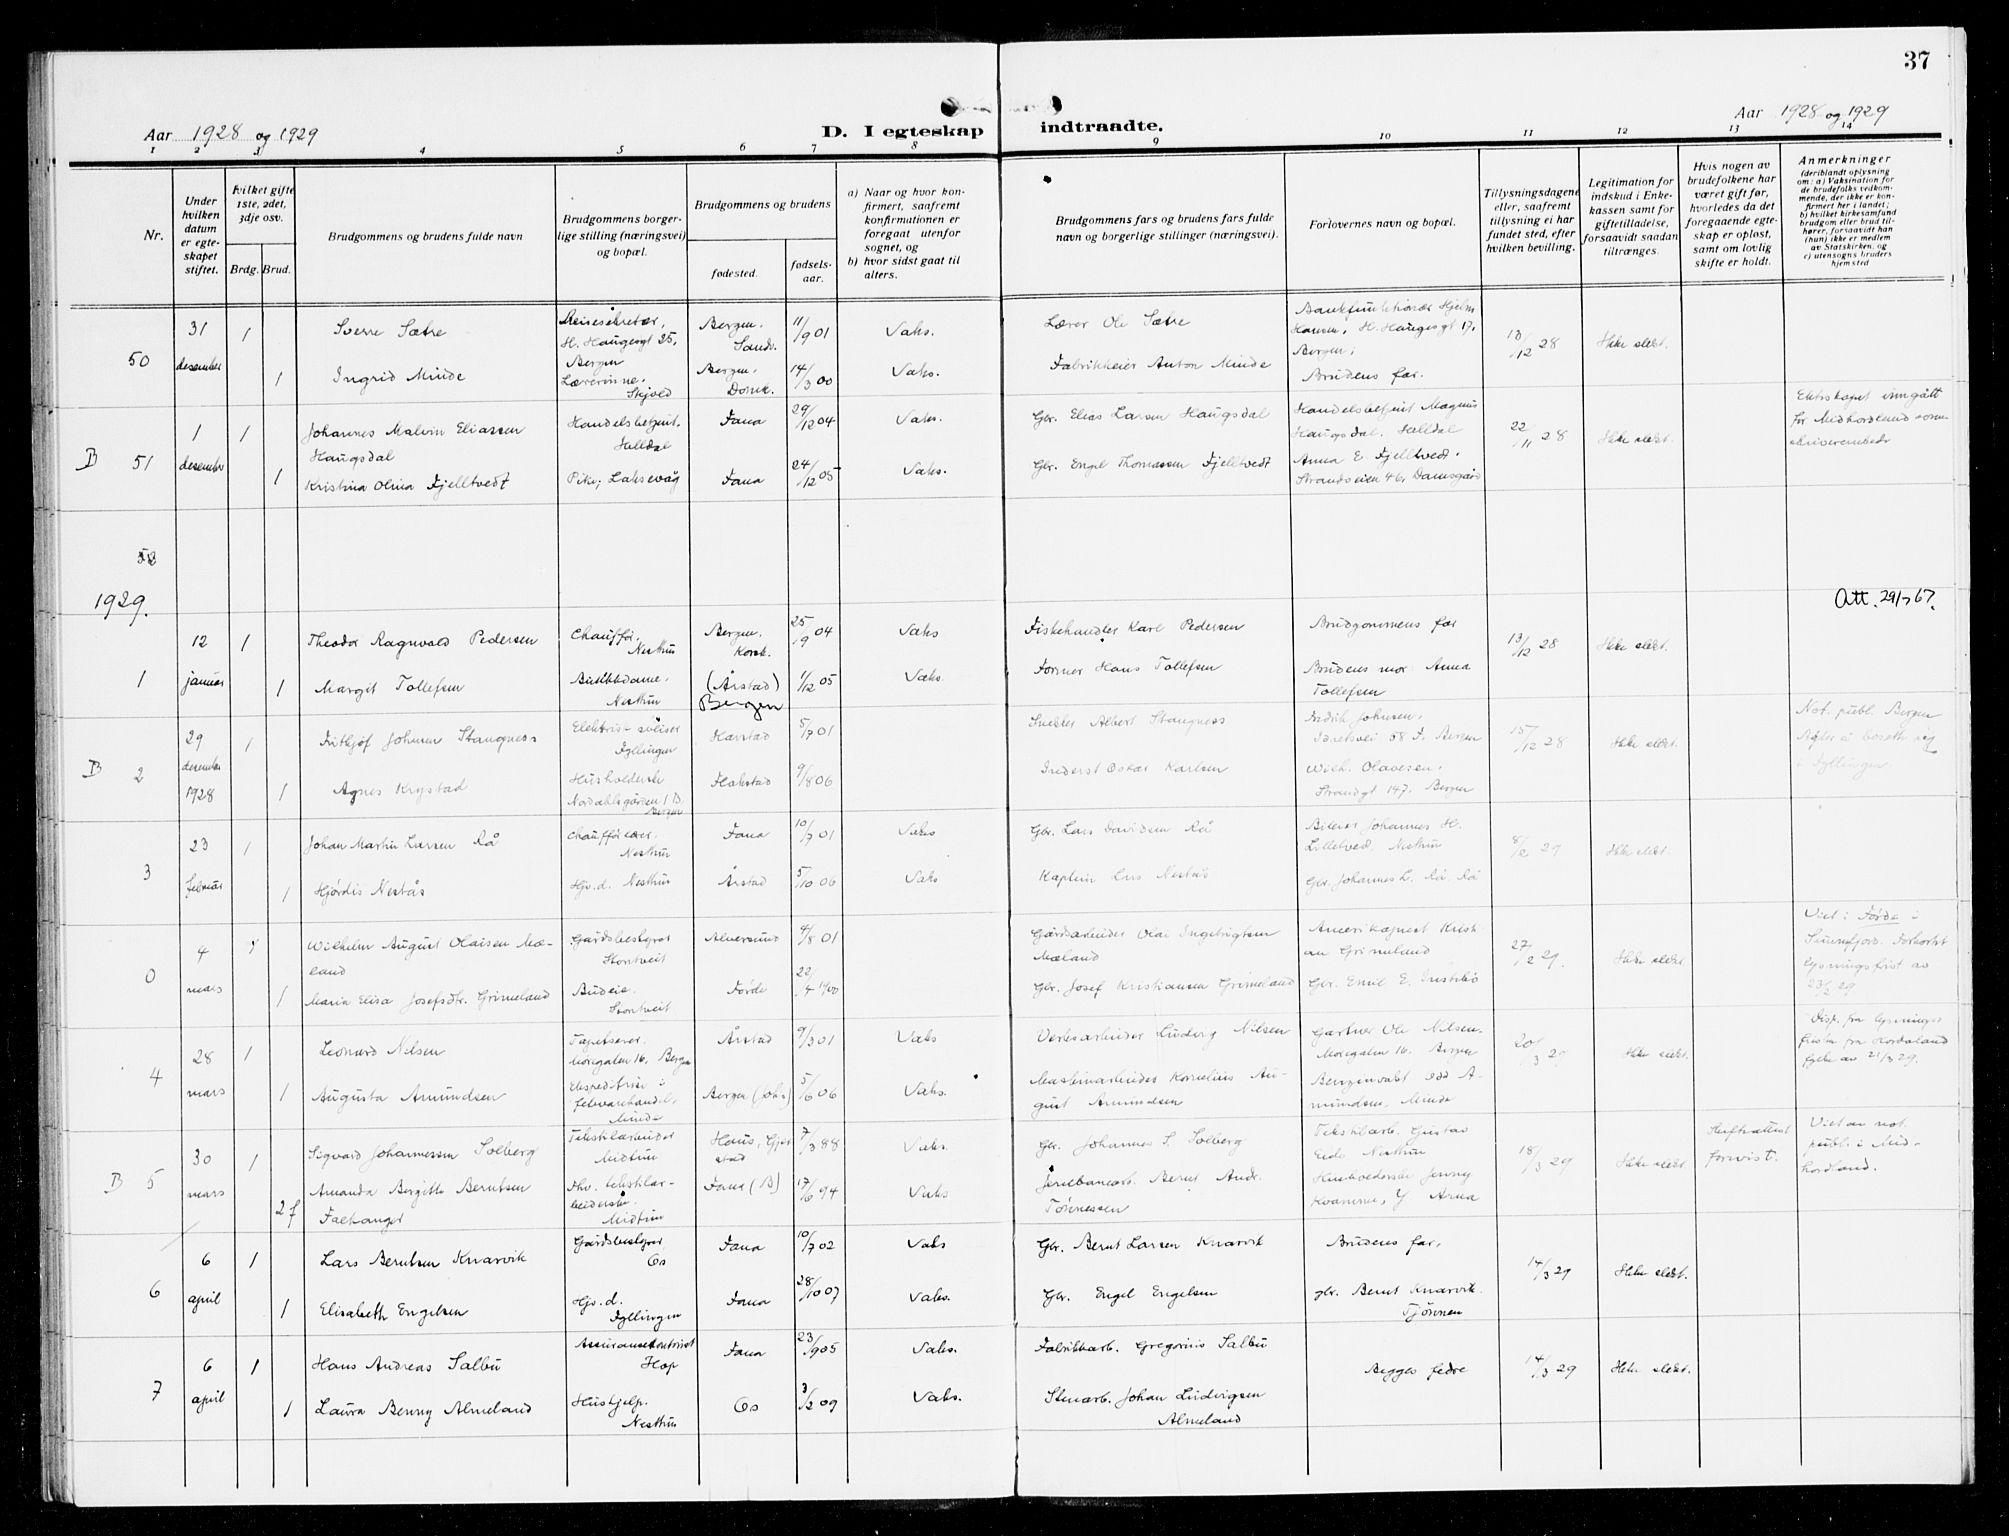 37
Aar 1928 og 1929
D. I egteskap indtraadte.
Aar 1928 og 1929
1 2 3 4 5 6 7 8 9 10 11 12 13 14
Nr.
Under hvilken datum er egteskapet stiftet.
Hvilket gifte 1ste, 2det, 3dje osv.
Brdg. Brud.
Brudgommens og brudens fulde navn
Brudgommens borgerlige stilling (næringsvei) og bopæl.
Brudgommens og brudens
fødested.
fødselsaar.
a) Naar og hvor konfirmert, saafremt konfirmationen er foregaat utenfor sognet, og
b) hvor sidst gaat til alters.
Brudgommens fars og brudens fars fulde navn og borgerlige stillinger (næringsvei).
Forlovernes navn og bopæl.
Tillysningsdagene eller, saafremt tillysning ei har fundet sted, efter hvilken bevilling.
Legitimation for indskud i Enkekassen samt for giftetilladelse, forsaavidt saadan tiltrænges.
Hvis nogen av brudefolkene har været gift før, hvorledes da det foregaaende egteskap er opløst, samt om lovlig skifte er holdt.
Anmerkninger
(deriblandt oplysning om: a) Vaksination for de brudefolks vedkommende, der ikke er konfirmert her i landet; b) hvilket kirkesamfund brudgom eller brud tilhører, forsaavidt han (hun) ikke er medlem av Statskirken, og c) utensogns bruders hjemsted
50 31 desember
1 Sverre Sætre Reisesekretær, H. Haugesgt 25, Bergen Bergen, Sandv. 11/9 01 Vaks. Lærer Ole Sætre
1 Ingrid Minde Lærerinne, Skjold Bergen, Domk. 14/3 00 Vaks. Fabrikkeier Anton Minde
Hansen, H. Haugesgt 17, Bergen; Brudens far. 13/12 28 Ikke slekt.
B 51 1 desember
1 Johannes Malvin Eliassen Haugsdal Handelsbetjent, Helldal Fana 29/12 04 Vaks. Gbr. Elias Larsen Haugsdal
1 Kristina Olina Fjelltvedt Pike, Laksevåg Fana 24/12 05 Vaks. Gbr. Engel Thomassen Fjelltvedt
Handelsbetjent Magnus Haugsdal, Helldal
Anna E. Fjelltvedt, Strandveien 46, Damsgård 22/11 28 Ikke slekt.
Ekteskapet inngått for Midhordland sorenskriverembede
52
1929.
Att. 29/7 67.
1 12 januar
1 Theodor Ragnvald Pedersen Chauffør, Nesttun Bergen, Korsk. 25/9 04 Vaks Fiskehandler Karl Pedersen Brudgommens far
1 Margit Tollefsen Butikkdame, Nesttun (Årstad) Bergen 1/12 05 Vaks. Former Hans Tollefsen Brudens mor Anna Tollefsen
13/12 28 Ikke slekt.
B 2 29 desember 1928
1 Fritjof Johnsen Stangness Fyllingen Harstad 5/7 01 Snekker Albert Stangness
1 Agnes Krystad Husholderske Nordahlsgården 1 B. Bergen Flakstad 9/8 06 Inderst Oskar Karlsen
Fridrik Johnsen, 58 Bergen
Wilh. Olavesen, Strandgt 147, Bergen 15/12 28 Ikke slekt.
Not. publ. Bergen Agter å bosette seg i Fyllingen.
3 23 februar
1 Johan Martin Larsen Rå Chauffør Nesttun Fana 10/7 01 Vaks Gbr. Lars Davidsen Rå
1 Hjørdis Nestås Hjv.d. Nesttun Årstad 5/10 06 Vaks Kaptein Lars Nestås
Bileier Johannes H. Lilletvedt, Nesttun
Gbr. Johannes L. Rå, Rå 8/2 29 Ikke slekt.
0 4 mars
1 Wilhelm August Olaisen Mæland Gårdsbestyrer Stortveit Alversund 4/8 01 Gårdsarbeider Olai Ingebrigtsen Mæland
1 Maria Elisa Josefsdtr. Grimeland Budeie, Stortveit Førde 22/4 1900 Gbr. Josef Kristiansen Grimeland
Kristian Grimeland
Gbr. Emil E. 27/2 29. Ikke slekt
Viet i Førde i Sunnfjord. Forkortet lysningsfrist av 23/2 29
4 28 mars
1 Leonard Nilsen Tapetserer, 16, Bergen Årstad 9/3 01 Vaks Verksarbeider Ludvig Nilsen
1 Augusta Amundsen Ekspeditrise i fetevarehandel, Minde Bergen (Joh.) 5/6 06 Vaks. Maskinarbeider Kornelius August Amundsen
Gartner Ole Nilsen, 16, Bergen
Amundsen, Minde 20/3 29 Ikke slekt.
Disp. fra lysnings fristen fra Hordaland fylke av 21/3 29.
B 5 30 mars
1 Sigvard Johannessen Solberg Tekstilarbeider Midtun Haus, Gjerstad 7/3 88 Vaks. Gbr. Johannes S. Solberg
2 f Amanda Bergitte Berntsen Falkanger Fhv. tekstilarbeiderske Midtun Fana (B) 17/6 94 Vaks Jernbanearb. Bernt Andr. Tørnessen
Tekstilarb. Gustav Eide Nesttun
Husholderske Jenny Kvamme, Y Arna 18/3 29 Ikke slekt
Skifteattest forevist.
Viet av not. publ. i Midhordland.
6 6 april
1 Lars Berntsen Knarvik Gårdsbestyrer, Os Fana 10/7 02 Vaks Gbr. Bernt Larsen Knarvik Brudens far,
1 Elisabeth Engelsen Hjv. d. Fyllingen Fana 28/10 07 Vaks. Gbr. Engel Engelsen gbr. Bernt Knarvik
14/3 29 Ikke slekt.
7 6 april
1 Hans Andreas Salbu Hop Fana 23/9 05 Vaks. Fabrikkarb. Gregorius Salbu
1 Laura Benny Almeland Hushjelp, Nesttun Os 3/2 09 Vaks. Stenarb. Johan Ludvigsen Almeland
Begges fedre 14/3 29 Ikke slekt.